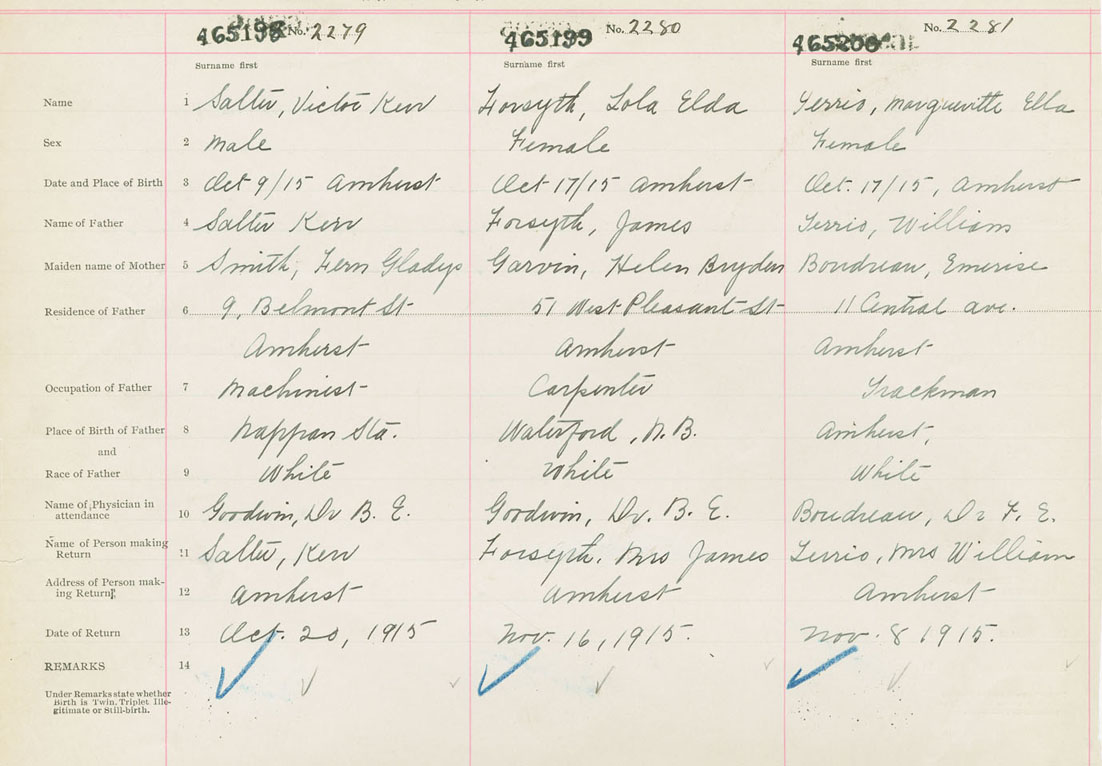 465198 No. 2279 465199 No. 2280 465200 No. 2281
Surname first Surname first Surname first
Name 1 Salter, Victor Kerr Forsyth, Lola Elda Terrio, Margueritte Ella
Sex 2 Male Female Female
Date and Place of Birth 3 Oct 9/15 Amherst Oct 17/15 Amherst Oct. 17/15, Amherst
Name of Father 4 Salter Kerr Forsyth, James Terrio, William
Maiden name of Mother 5 Smith, Fern Gladys Garvin, Helen Bryden Boudreau, Emerise
Residence of Father 6 9, Belmont St 51 West Pleasant St 11 Central ave.
Amherst Amherst Amherst
Occupation of Father 7 Machinist Carpenter Trackman
Place of Birth of Father 8 Nappan Sta. Waterford, N. B. Amherst,
and
Race of Father 9 White White White
Name of Physician in
attendance 10 Goodwin, Dr B. E. Goodwin, Dr. B. E. Boudreau, Dr F. E.
Name of Person making
Return 11 Salter, Kerr Forsyth. Mrs James Terrio, Mrs William
Address of Person mak-
ing Return 12 Amherst Amherst Amherst
Date of Return 13 Oct. 20, 1915 Nov. 16, 1915. Nov. 8 1915.
REMARKS 14
Under Remarks state whether
Birth is Twin, Triplet Ille-
gitimate or Still-birth.